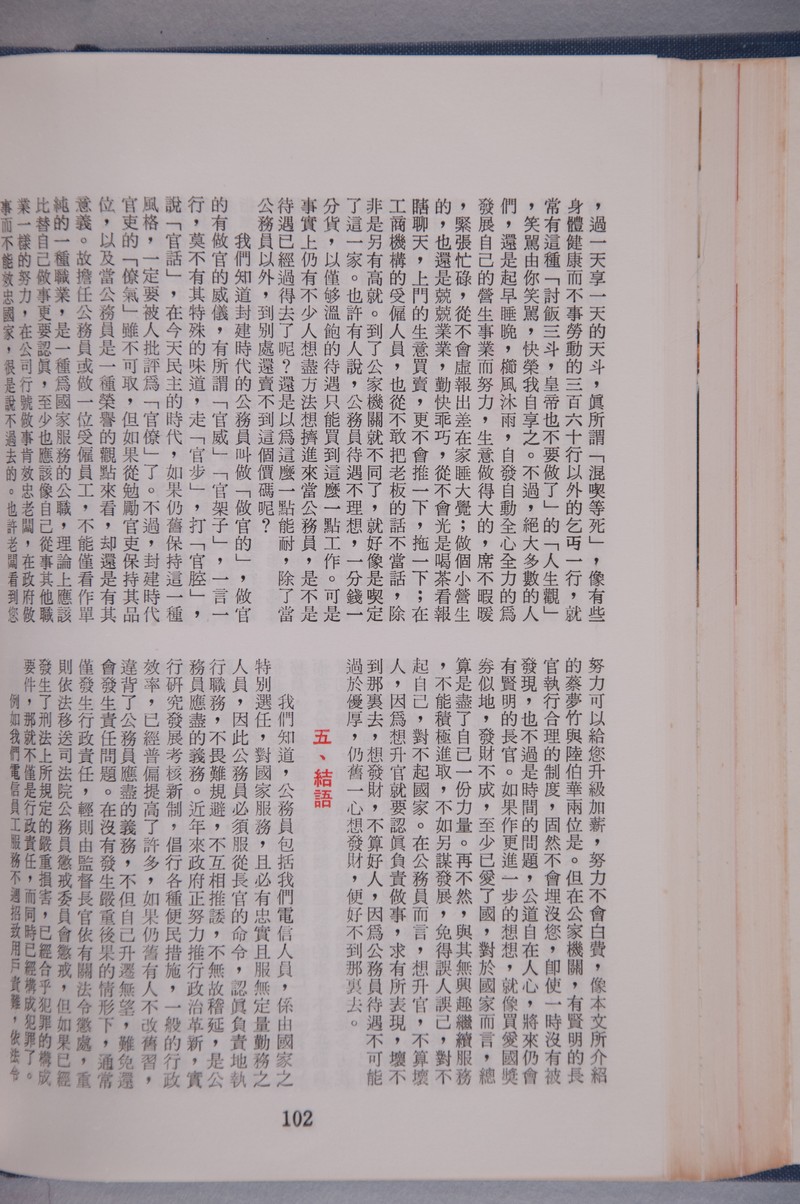 ，過一天享一天的天斗，眞所謂「混喫等死」，像有些
身體健康而不事勞動的三百六十行以外的乞丐一行，就
常有這種「討飯三斗，皇帝也不要做了」的「人生觀」
，笑駡由你笑駡，快榮我自享之。不過，絕大多數的人
們，還是起早睡晚，櫛風沐雨，自發自動全心全力的爲
發展自己的營生事業而努力，生意做得大的，席不暇暖
，緊張忙碌，從不會虛報出差在家睡大覺；做個小營生
的，也還是兢兢業業，勤快乖巧，從不會光是喝茶看報
瞎聊天，上門的生意買賣，更不會推一下，拖一下；在
工商機構的受僱人員，也從不敢把老板的話不當話，除
非是另有高就。到了公家機關就不同了，就好像是喫定
了這一家。也許有人說，公務員待遇不理想，一分錢一
分貨，以僅够溫飽的待遇只能買到這麼一點工作。可是
事實上仍有不少人想盡方法想擠進來當公務員，是不是
待遇已經過得去了呢？還是以爲這麼一點能耐，除了當
公務員以外，到別處還賣不到這個價碼呢？
我們知道封建時代的公務員叫做「做官的」，做官
的有做官的威儀，有所謂「官威」「官架子」，一言一
行，莫不有其特殊的味道，走「官步」，打「官腔」，
說「官話」，在今天民主的時代，如果仍舊保持這一種
風格，一定要被人批評爲「官僚」了。不過，封建時代
官吏的「僚氣」雖不可取，但如果從勉勵官吏保持其品
位，以及當公務員是一種榮譽的觀點來看，却還是有其
意義。故擔任公務員或做一位受僱員工，不能僅看作單
純的一種職業，是一種爲國家服務的公職，理論上應該
比替自己做事更要認眞，至少也應該像自己從事其他職
業一樣的努力，在公司行號做事肯效忠老闆，在政府做
事而不能效忠國家，很是說不過去的。也許老闆看到您
努力可以給您升級加薪，努力不會白費，像本文所介紹
的蔡夢竹與陸伯華兩位是。但在公家機關，有賢明的長
官執行合理的制度，固然不會埋沒您，卽使一時沒有被
發現，也不過是時間的問題，公道自在人心，將來仍會
有賢明的長官。如果作更進一步的想想，就像買愛國獎
券似地，發財不成，至少已愛了國，對於國家而言，總
算是盡了自己一份力量。再不然，與其無興趣繼續服務
，不能積極進取，不如另謀發展，免得誤人誤己，對不
起自己，對不起國家。在公務員而言，想升官，不算壞
人，因爲想升官就要認眞負責做事，求有所表現，壞不
到那裏去，想發財，不算好人，因爲公務員待遇不可能
過於優厚，仍舊一心想發財，便好不到那裏去。
五、結語
我們知道，公務員包括我們電信人員，係由國家之
特別選任，對國家服務，且必有忠實且服無定量勤務之
人員，因此公務員必須服從長官的命令，認眞負責地執
行職務，不畏難規避，不互相推諉，不無故稽延，是公
務員應盡的義務。近年來政府正努力推行政治革新，實
行研究發展考核新制，倡行各種便民措施，一般的行政
效率，已經普徧提高了許多，如果仍舊有人不改舊習，
違背了公務員應盡的義務，不但自己升遷無望，難免還
會發生責任問題。在沒有發生嚴重後果的情形下，通常
僅發生行政責任，輕則由監督長官依有關法令懲處，重
則依法移送司法院公務員懲戒委員會懲戒，但如果已經
發生了刑法上所規定的嚴重損害，已經合乎犯罪的構成
要件，那就不僅是行政責任，而同時已經構成犯罪了。
例如我們電信員工服務不週招致用戶責難，依法令
102